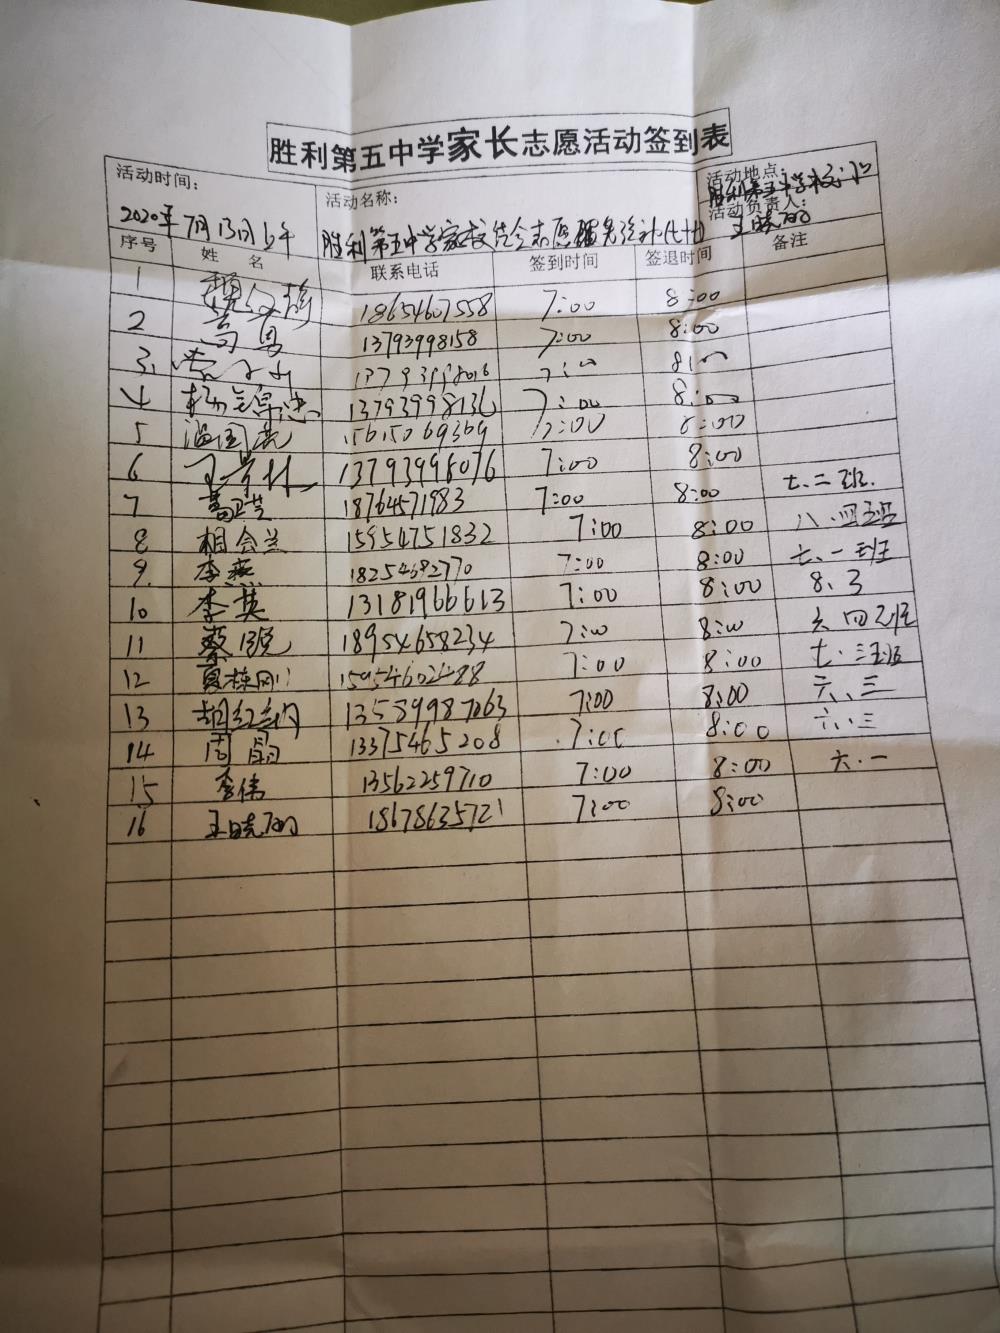 胜利第五中学家长志愿活动签到表
活动时间： 活动名称： 活动地点：
2020年7月13日上午 胜利第五中学家校 胜利第五中学
活动负责人：
王晓丽
序号 姓名 联系电话 签到时间 签退时间 备注
1 18654607558 7:00 8:00
2 高勇 13793998158 7:00 8:00
3 8:00
4 杨锦忠 13793998136 7:00 8:00
5 15615069369 7:00 8:00
6 13793998076 7:00 8:00
7 葛芸 18764571983 7:00 8:00 七、二班.
8 相会兰 15954751832 7:00 8:00 八、四班
9 李燕 18254682770 7:00 8:00 七、一班
10 李英 13181966613 7:00 8:00 8、3
11 18954658234 7:00 8:00 六 四班
12 夏栋刚 15954602488 7:00 8:00 七、三班
13 13589987063 7:00 8:00 六、三
14 周丽 13375465208 7:00 8:00 六、三
15 李伟 13562259710 7:00 8:00 六、一
16 王晓丽 18678635721 7:00 8:00